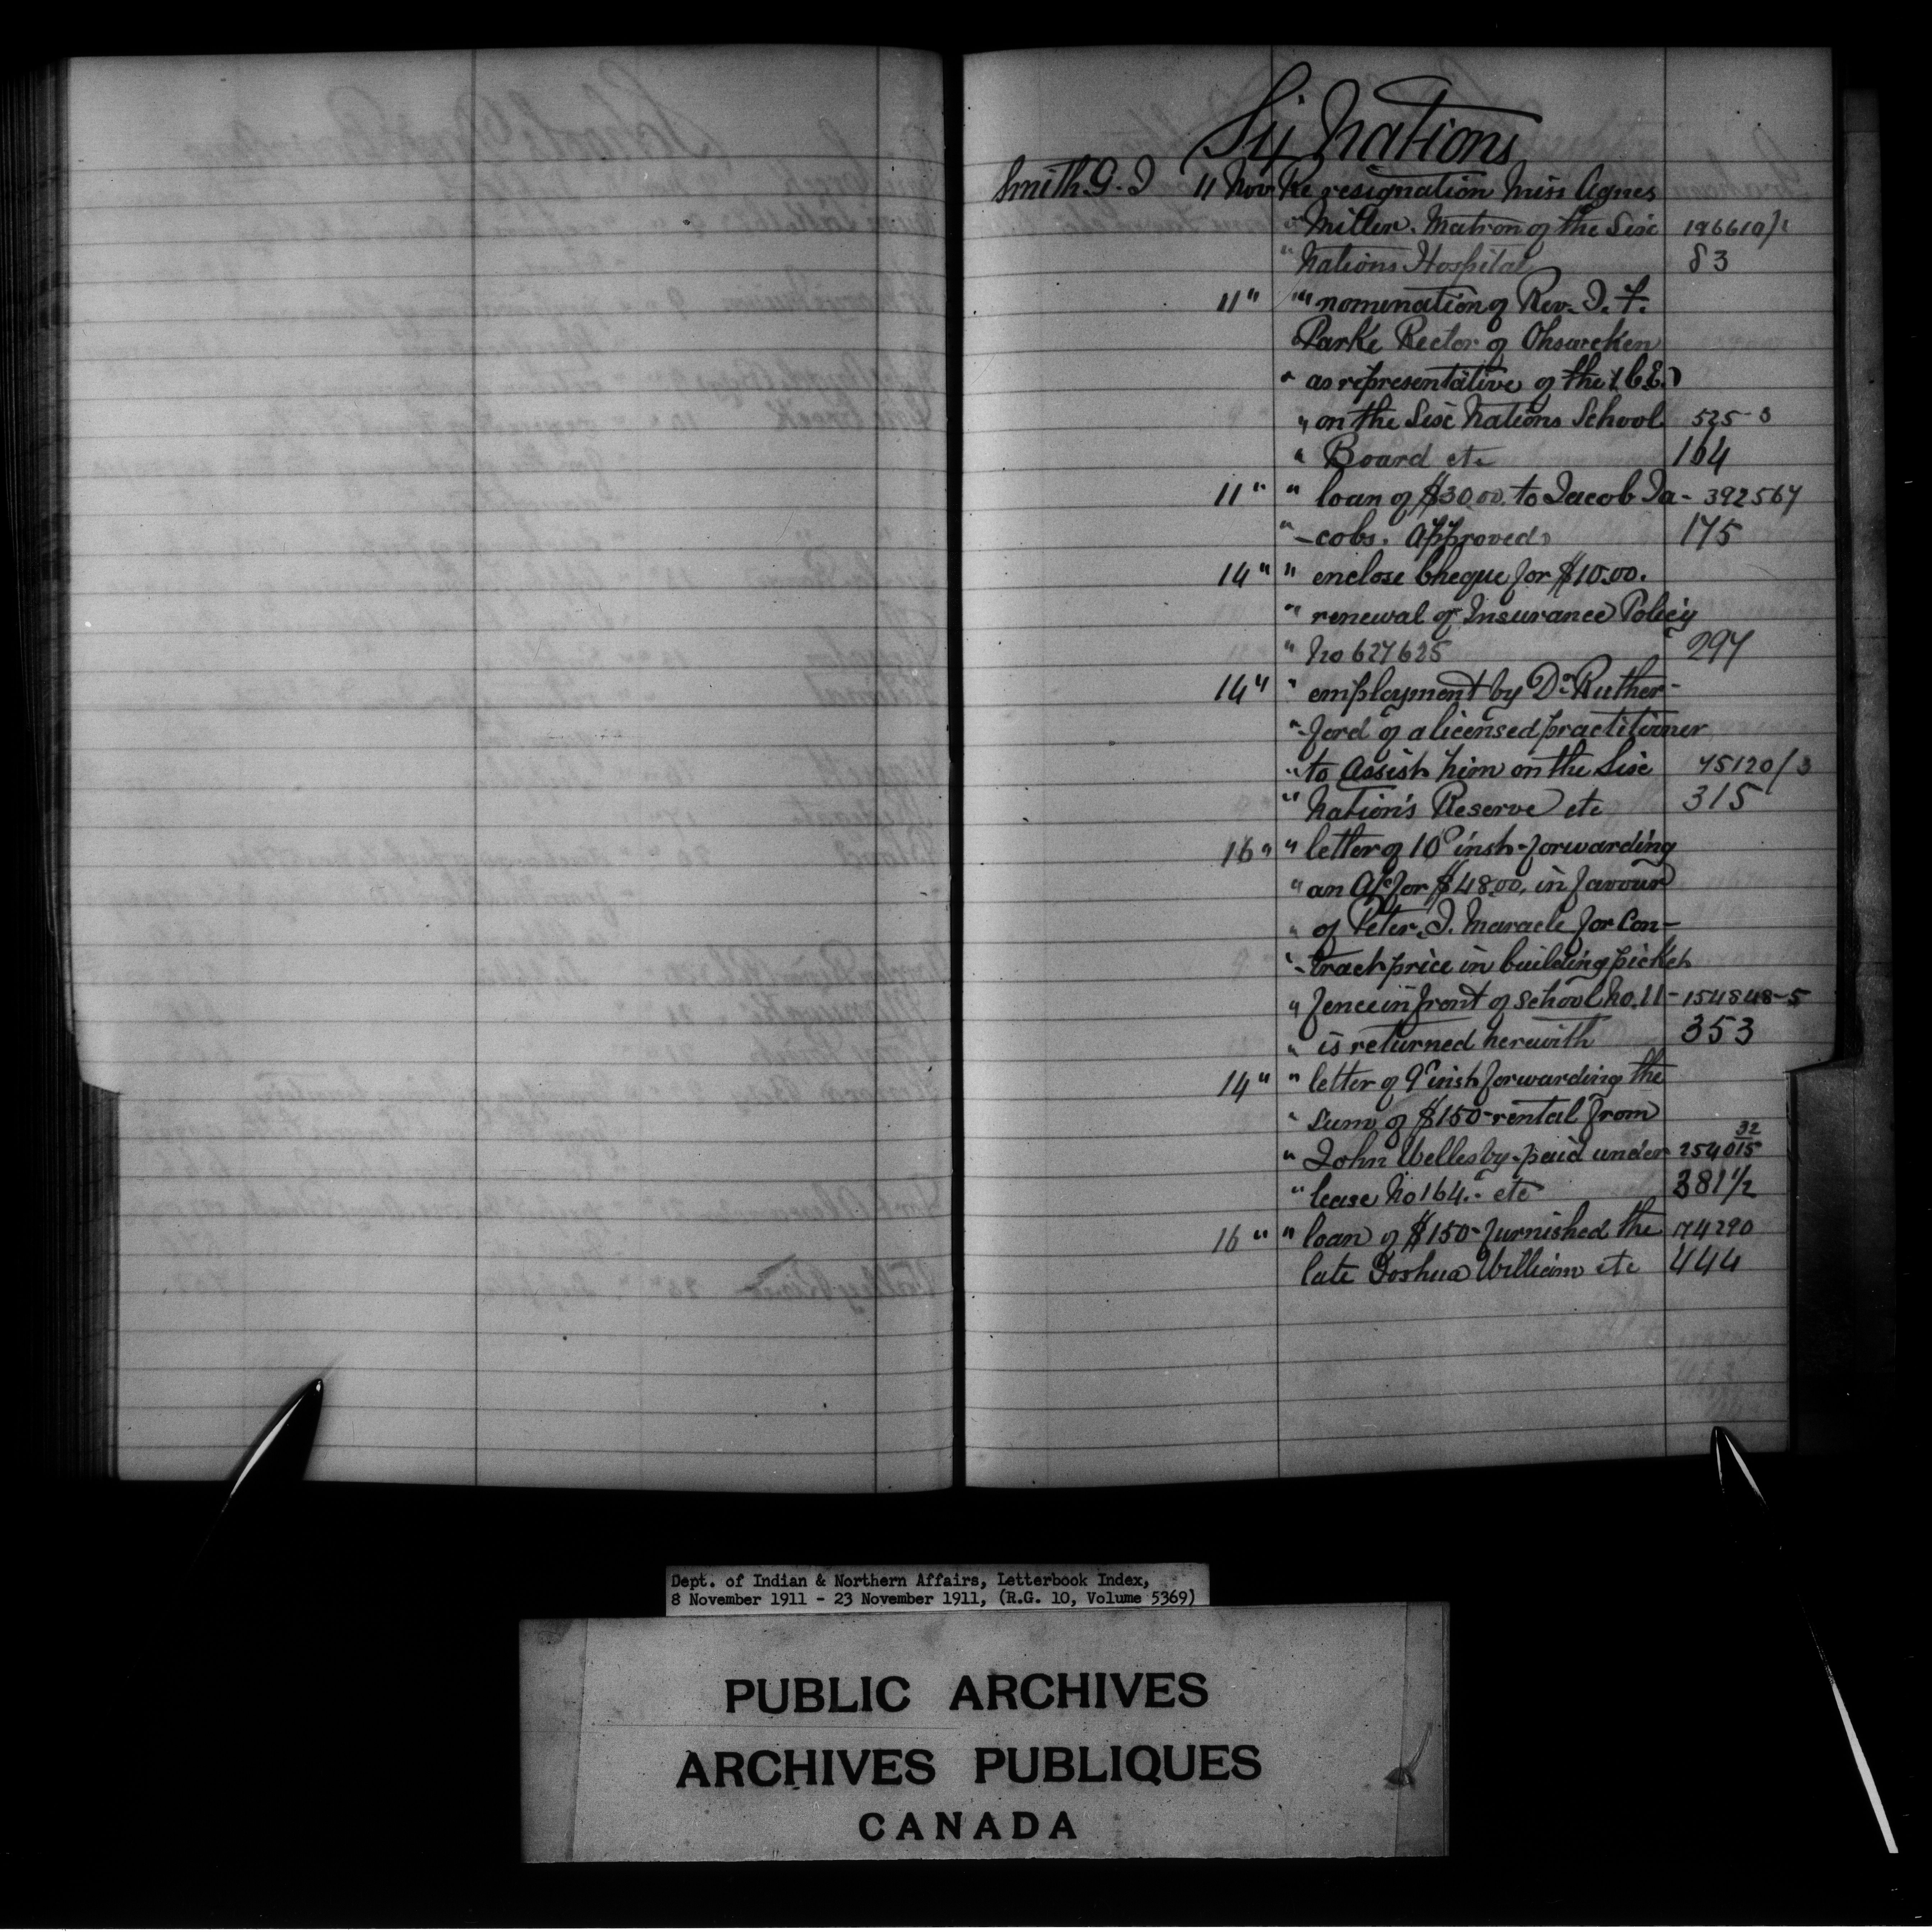 Six Nations
Smith G. J 11 Nov Re resignation Miss Agnes
" Miller. Matron of the Six 196610/1
" Nations Hospital 83
11 " " " nomination of Rev. J. F.
Parke Rector of Ohsweken
" as representative of the
" on the Six Nations School 525-3
" Board etc 164
11 " " loan of $30.00. to Jacob Ja- 392567
" -cobs. Approved 175
14 " " enclose Cheque for $10.00.
" renewal of Insurance Policy
" No 627625 297
14 " " employment by Dr Ruther-
" -ford of a licensed practitioner
" to Assist him on the Six 75120/3
" Nation's Reserve etc 315
16 " " letter of 10th inst- forwarding
" an A/c for $48.00, in favour
" of Peter. J. Maracle for Con-
" -tract price in building picket
" fence in front of School No. 11- 154848-5
" is returned herewith 353
14 " " letter of 9th inst forwarding the
" sum of $150- rental from
" John Wellesby. paid under 254015 32
" lease No 164.- etc 381 1/2
16 " " loan of $150- furnished the 174290
late Joshua William etc 444
Dept. of Indian & Northern Affairs, Letterbook Index,
8 November 1911 - 23 November 1911, (R.G. 10, Volume 5369)
PUBLIC ARCHIVES
ARCHIVES PUBLIQUES
CANADA